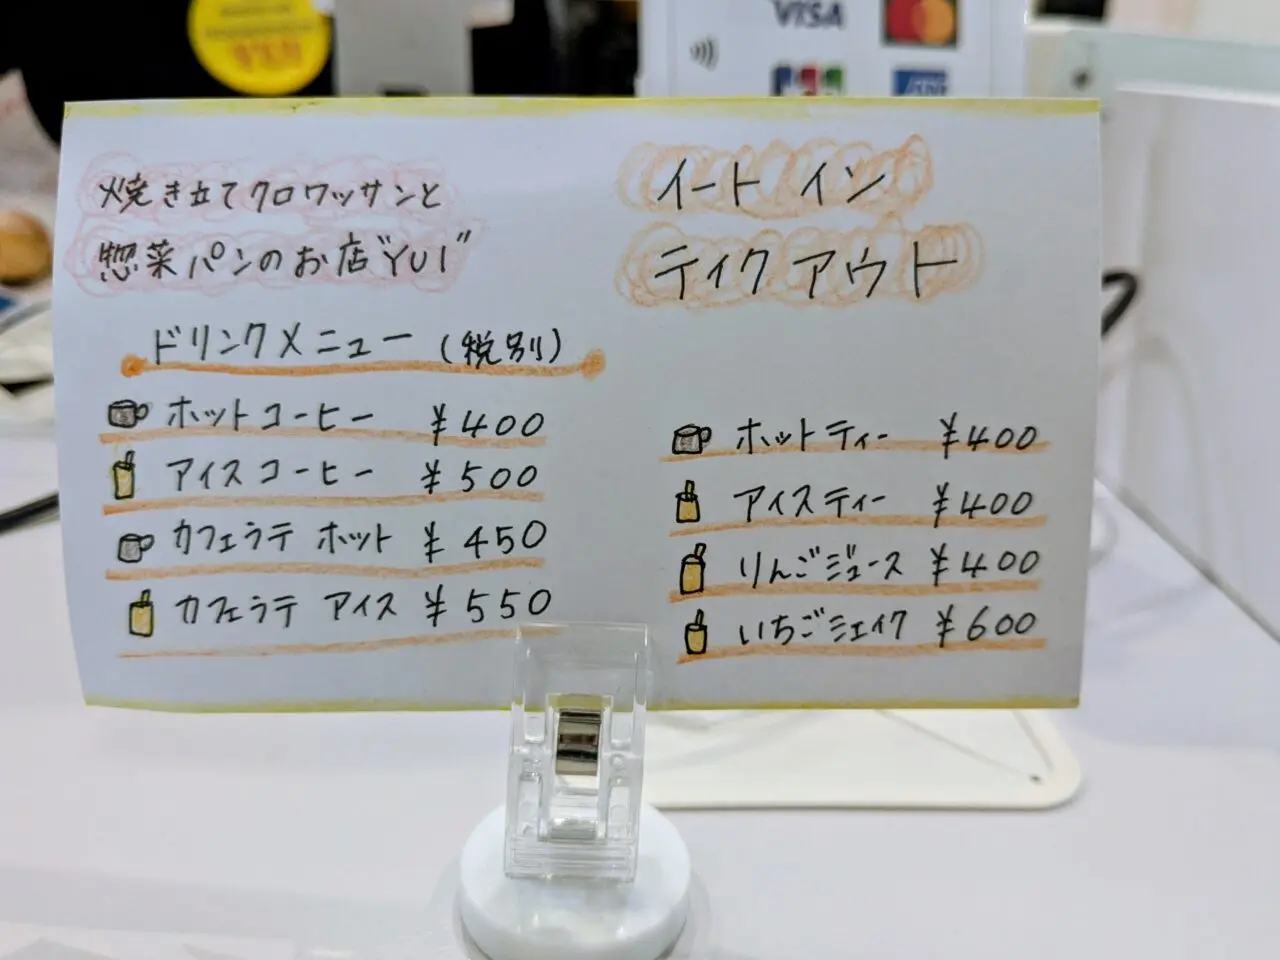 VISA
焼き立てクロワッサンと
惣菜パンのお店"YUI"
イート イン
テイク アウト
ドリンクメニュー (税別)
ホットコーヒー ¥400
アイスコーヒー ¥500
カフェラテ ホット ¥450
カフェラテ アイス ¥550
ホットティー ¥400
アイスティー ¥400
りんごジュース ¥400
いちごシェイク ¥600